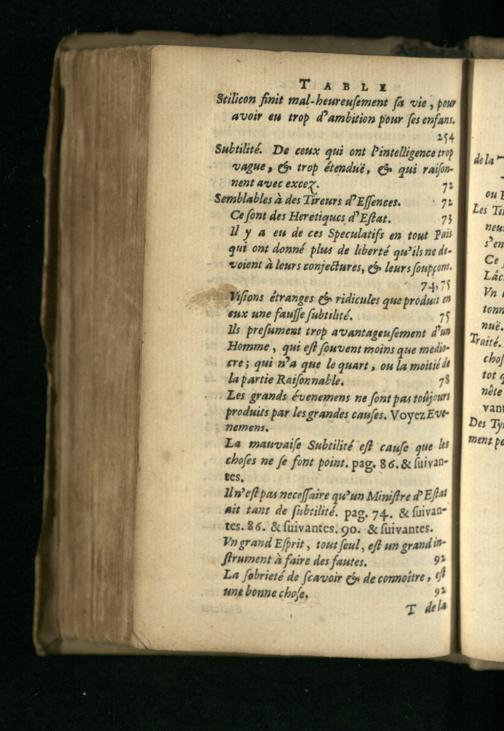 TABLE
Stilicon finit mal-heureusement sa vie, pour
avoir eu trop d'ambition pour ses enfans.
254
Subtilité. De ceux qui ont l'intelligence trop
vague, & trop étenduë, & qui raison-
nent avec excez. 72
Semblables à des Tireurs d'Essences. 72
Ce sont des Heretiques d'Estat. 73
Il y a eu de ces Speculatifs en tout Païs
qui ont donné plus de liberté qu'ils ne de-
voient à leurs conjectures, & leurs soupçons.
74, 75
Visions étranges & ridicules que produit en
eux une fausse subtilité. 75
Ils presument trop avantageusement d'un
Homme, qui est souvent moins que medio-
cre; qui n'a que le quart, ou la moitié de
la partie Raisonnable. 78
Les grands évenemens ne sont pas toûjours
produits par les grandes causes. Voyez Eve-
nemens.
La mauvaise Subtilité est cause que les
choses ne se font point. pag. 86. & suivan-
tes.
Il n'est pas necessaire qu'un Ministre d'Estat
ait tant de subtilité. pag. 74. & suivan-
tes. 86. & suivantes. 90. & suivantes.
Vn grand Esprit, tout seul, est un grand in-
strument à faire des fautes. 92
La sobrieté de scavoir & de connoître, est
une bonne chose. 92
T de la
de la
ou
Les
neu
s'en
Ce
Lâc
Vn
tonn
nuë.
Traité.
chos
tot
nête
vant
Des Ty
ment pe